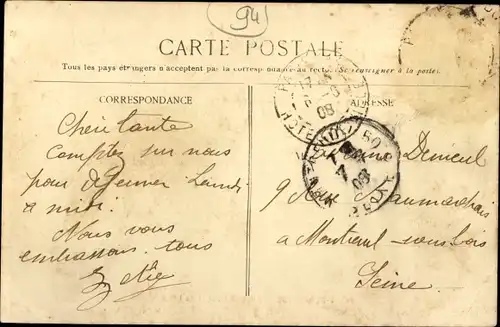 94
CARTE POSTALE
Tous les pays étrangers n'acceptent pas la correspondance au recto. Se renseigner à la poste.
CORRESPONDANCE
ADRESSE
Chère tante
Comptez sur nous
pour déjeuner Lundi
à midi.
Nous vous
embrassons tous
9 Rue
à Montreuil-sous-bois
Seine